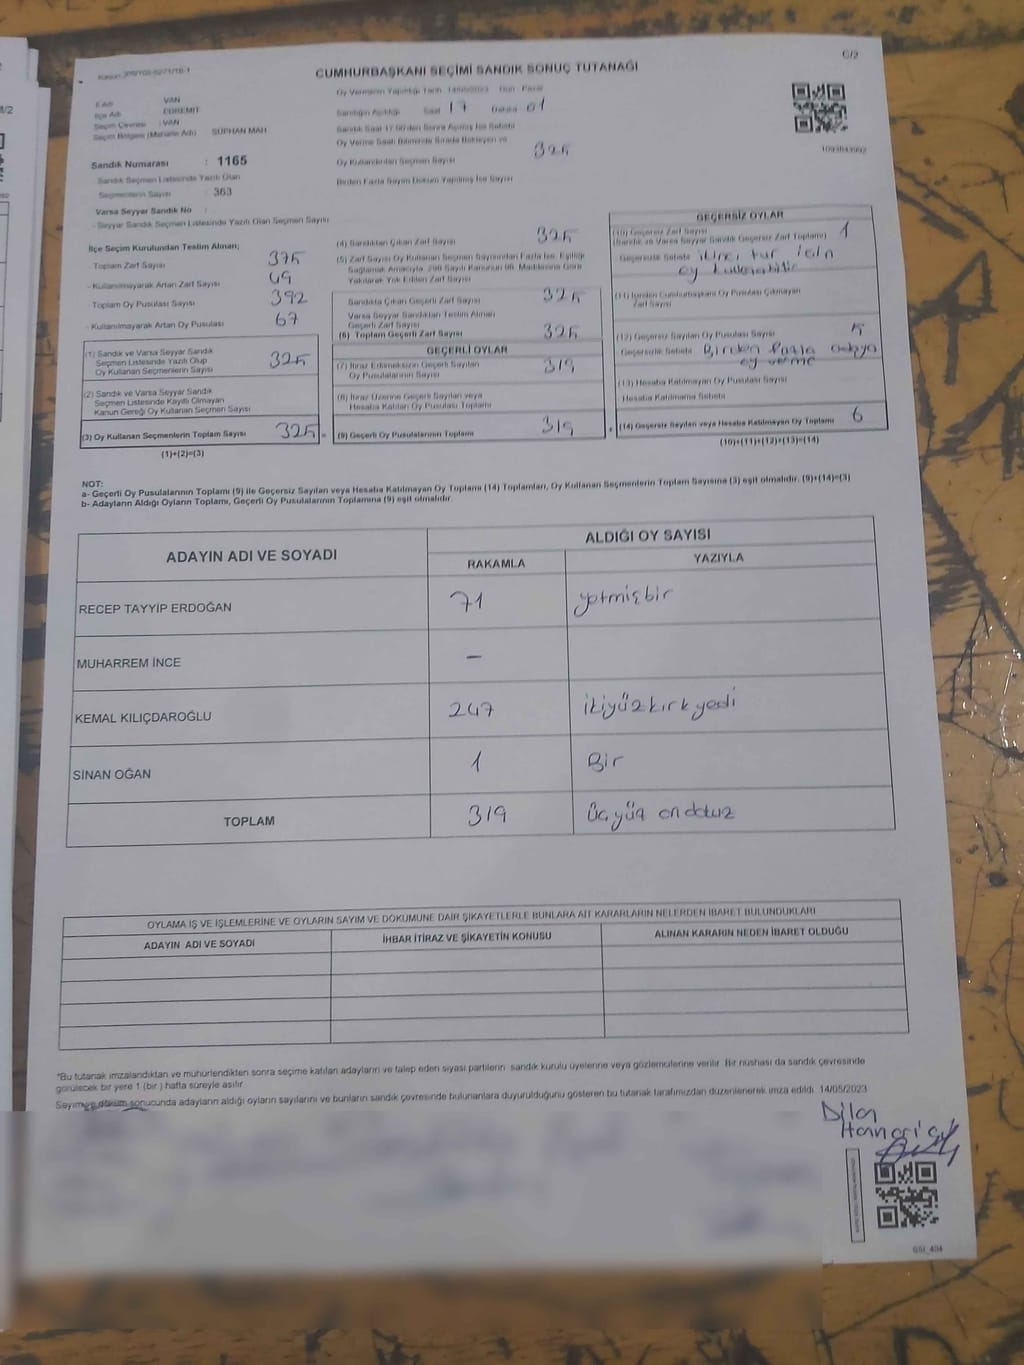 C/2
CUMHURBAŞKANI SEÇİMİ SANDIK SONUÇ TUTANAĞI
İl Adı VAN
İlçe Adı EDREMİT
Seçim Çevresi : VAN
Seçim Bölgesi (Mahalle Adı) SÜPHAN MAH
Sandık Numarası : 1165
Sandık Seçmen Listesinde Yazılı Olan
Seçmenlerin Sayısı : 363
Varsa Seyyar Sandık No :
- Seyyar Sandık Seçmen Listesinde Yazılı Olan Seçmen Sayısı
Oy Vermenin Yapıldığı Tarih 14/05/2023 Gün Pazar
Sandığın Açıldığı Saat 17 Dakika 01
Sandık Saat 17.00'den Sonra Açılmış İse Sebebi
Oy Verme Saati Bitiminde Sırada Bekleyen ve
Oy Kullandırılan Seçmen Sayısı 325
Birden Fazla Sayım Döküm Yapılmış İse Sayısı
İlçe Seçim Kurulundan Teslim Alınan;
- Toplam Zarf Sayısı 375
- Kullanılmayarak Artan Zarf Sayısı 49
- Toplam Oy Pusulası Sayısı 392
- Kullanılmayarak Artan Oy Pusulası 67
(1) Sandık ve Varsa Seyyar Sandık
Seçmen Listesinde Yazılı Olup
Oy Kullanan Seçmenlerin Sayısı 325
(2) Sandık ve Varsa Seyyar Sandık
Seçmen Listesinde Kayıtlı Olmayan
Kanun Gereği Oy Kullanan Seçmen Sayısı
(3) Oy Kullanan Seçmenlerin Toplam Sayısı 325 =
(1)+(2)=(3)
(4) Sandıktan Çıkan Zarf Sayısı 325
(5) Zarf Sayısı Oy Kullanan Seçmen Sayısından Fazla İse, Eşitliği
Sağlamak Amacıyla, 298 Sayılı Kanunun 98. Maddesine Göre
Yakılarak Yok Edilen Zarf Sayısı
Sandıkta Çıkan Geçerli Zarf Sayısı 325
Varsa Seyyar Sandıktan Teslim Alınan
Geçerli Zarf Sayısı
(6) Toplam Geçerli Zarf Sayısı 325
GEÇERLİ OYLAR
(7) İtiraz Edilmeksizin Geçerli Sayılan
Oy Pusulalarının Sayısı 319
(8) İtiraz Üzerine Geçerli Sayılan veya
Hesaba Katılan Oy Pusulası Toplamı
(9) Geçerli Oy Pusulalarının Toplamı 319 +
GEÇERSİZ OYLAR
(10) Geçersiz Zarf Sayısı 1
(Sandık ve Varsa Seyyar Sandık Geçersiz Zarf Toplamı)
Geçersizlik Sebebi ikinci tur için
oy
(11) İçinden Cumhurbaşkanı Oy Pusulası Çıkmayan
Zarf Sayısı
(12) Geçersiz Sayılan Oy Pusulası Sayısı 5
Geçersizlik Sebebi Birden fazla adaya
oy verme
(13) Hesaba Katılmayan Oy Pusulası Sayısı
Hesaba Katılmama Sebebi
(14) Geçersiz Sayılan veya Hesaba Katılmayan Oy Toplamı 6
(10)+(11)+(12)+(13)=(14)
NOT:
a- Geçerli Oy Pusulalarının Toplamı (9) ile Geçersiz Sayılan veya Hesaba Katılmayan Oy Toplamı (14) Toplamları, Oy Kullanan Seçmenlerin Toplam Sayısına (3) eşit olmalıdır. (9)+(14)=(3)
b- Adayların Aldığı Oyların Toplamı, Geçerli Oy Pusulalarının Toplamına (9) eşit olmalıdır.
ADAYIN ADI VE SOYADI
ALDIĞI OY SAYISI
RAKAMLA YAZIYLA
RECEP TAYYİP ERDOĞAN 71 yetmişbir
MUHARREM İNCE -
KEMAL KILIÇDAROĞLU 247 ikiyüzkırkyedi
SİNAN OĞAN 1 Bir
TOPLAM 319 üçyüz ondokuz
OYLAMA İŞ VE İŞLEMLERİNE VE OYLARIN SAYIM VE DÖKÜMÜNE DAİR ŞİKAYETLERLE BUNLARA AİT KARARLARIN NELERDEN İBARET BULUNDUKLARI
ADAYIN ADI VE SOYADI İHBAR İTİRAZ VE ŞİKAYETİN KONUSU ALINAN KARARIN NEDEN İBARET OLDUĞU
"Bu tutanak imzalandıktan ve mühürlendikten sonra seçime katılan adayların ve talep eden siyasi partilerin sandık kurulu üyelerine veya gözlemcilerine verilir. Bir nüshası da sandık çevresinde
görülecek bir yere 1 (bir ) hafta süreyle asılır.
Sayım ve döküm sonucunda adayların aldığı oyların sayılarını ve bunların sandık çevresinde bulunanlara duyurulduğunu gösteren bu tutanak tarafımızdan düzenlenerek imza edildi. 14/05/2023
Dila